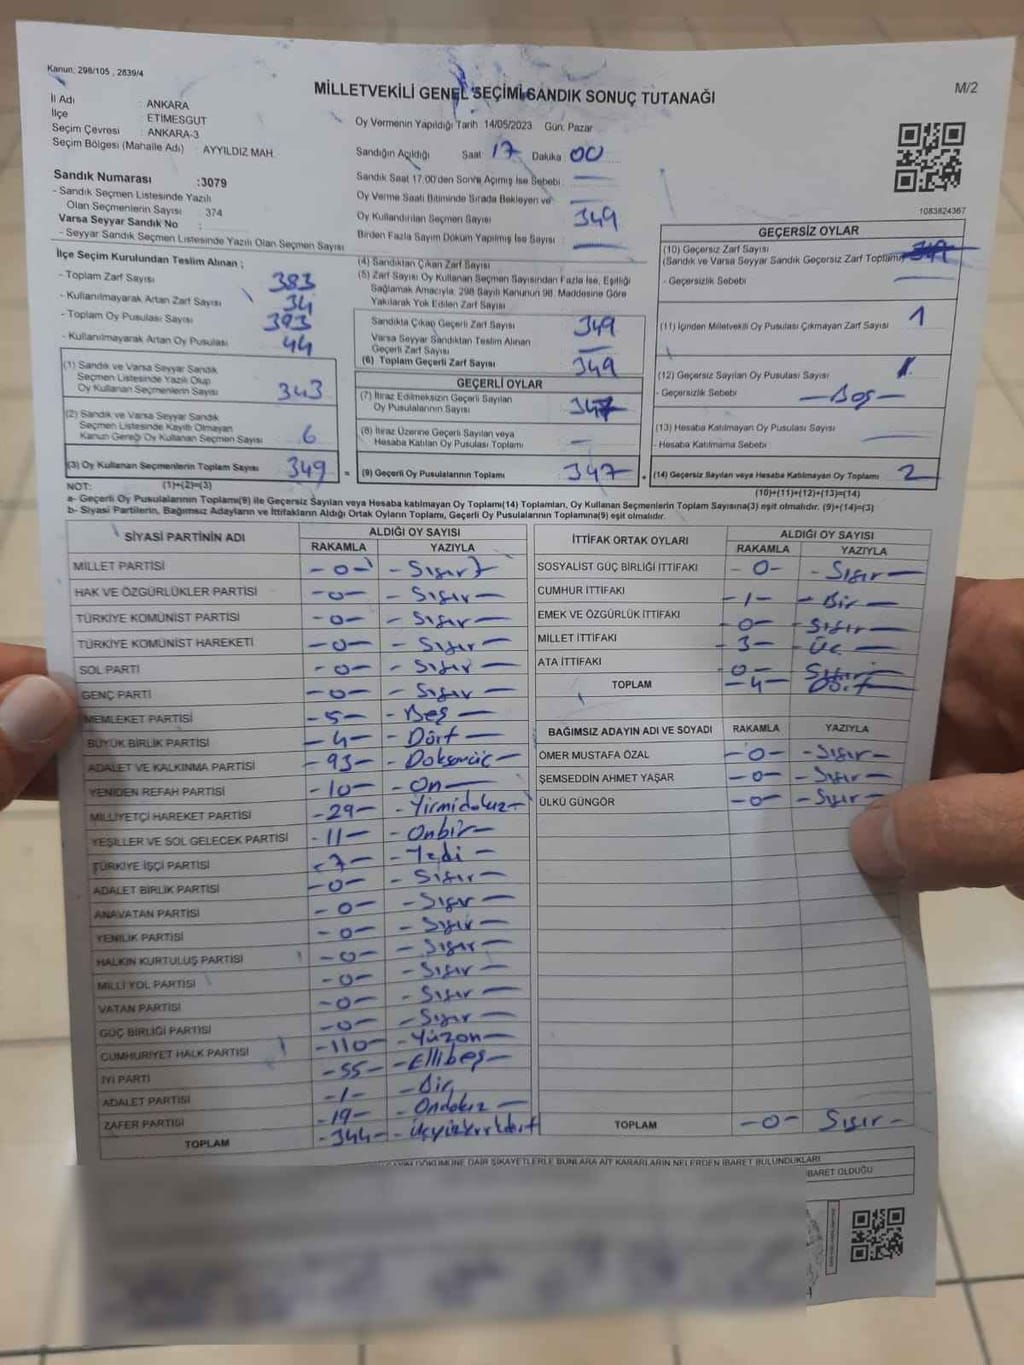 Kanun: 298/105 , 2839/4
M/2
MİLLETVEKİLİ GENEL SEÇİMİ SANDIK SONUÇ TUTANAĞI
İl Adı : ANKARA
İlçe : ETİMESGUT
Seçim Çevresi : ANKARA-3
Seçim Bölgesi (Mahalle Adı) : AYYILDIZ MAH.
Oy Vermenin Yapıldığı Tarih: 14/05/2023 Gün: Pazar
Sandığın Açıldığı Saat 17 Dakika 00
Sandık Saat 17.00'den Sonra Açılmış İse Sebebi :
Oy Verme Saati Bitiminde Sırada Bekleyen ve
Oy Kullandırılan Seçmen Sayısı 349
Birden Fazla Sayım Döküm Yapılmış İse Sayısı :
1083824367
Sandık Numarası :3079
- Sandık Seçmen Listesinde Yazılı
Olan Seçmenlerin Sayısı : 374
Varsa Seyyar Sandık No :
- Seyyar Sandık Seçmen Listesinde Yazılı Olan Seçmen Sayısı
İlçe Seçim Kurulundan Teslim Alınan ;
- Toplam Zarf Sayısı 383
- Kullanılmayarak Artan Zarf Sayısı 34
- Toplam Oy Pusulası Sayısı 393
- Kullanılmayarak Artan Oy Pusulası 44
(1) Sandık ve Varsa Seyyar Sandık
Seçmen Listesinde Yazılı Olup
Oy Kullanan Seçmenlerin Sayısı 343
(2) Sandık ve Varsa Seyyar Sandık
Seçmen Listesinde Kayıtlı Olmayan
Kanun Gereği Oy Kullanan Seçmen Sayısı 6
(3) Oy Kullanan Seçmenlerin Toplam Sayısı 349 =
(4) Sandıktan Çıkan Zarf Sayısı
(5) Zarf Sayısı Oy Kullanan Seçmen Sayısından Fazla İse, Eşitliği
Sağlamak Amacıyla, 298 Sayılı Kanunun 98. Maddesine Göre
Yakılarak Yok Edilen Zarf Sayısı
Sandıkta Çıkan Geçerli Zarf Sayısı 349
Varsa Seyyar Sandıktan Teslim Alınan
Geçerli Zarf Sayısı —
(6) Toplam Geçerli Zarf Sayısı 349
GEÇERLİ OYLAR
(7) İtiraz Edilmeksizin Geçerli Sayılan
Oy Pusulalarının Sayısı 347
(8) İtiraz Üzerine Geçerli Sayılan veya
Hesaba Katılan Oy Pusulası Toplamı —
(9) Geçerli Oy Pusulalarının Toplamı 347
GEÇERSİZ OYLAR
(10) Geçersiz Zarf Sayısı
(Sandık ve Varsa Seyyar Sandık Geçersiz Zarf Toplamı)
- Geçersizlik Sebebi
(11) İçinden Milletvekili Oy Pusulası Çıkmayan Zarf Sayısı 1
(12) Geçersiz Sayılan Oy Pusulası Sayısı 1
- Geçersizlik Sebebi — Boş —
(13) Hesaba Katılmayan Oy Pusulası Sayısı
- Hesaba Katılmama Sebebi :
(14) Geçersiz Sayılan veya Hesaba Katılmayan Oy Toplamı 2
NOT: (1)+(2)=(3)
(10)+(11)+(12)+(13)=(14)
a- Geçerli Oy Pusulalarının Toplamı(9) ile Geçersiz Sayılan veya Hesaba katılmayan Oy Toplamı(14) Toplamları, Oy Kullanan Seçmenlerin Toplam Sayısına(3) eşit olmalıdır. (9)+(14)=(3)
b- Siyasi Partilerin, Bağımsız Adayların ve İttifakların Aldığı Ortak Oyların Toplamı, Geçerli Oy Pusulalarının Toplamına(9) eşit olmalıdır.
SİYASİ PARTİNİN ADI ALDIĞI OY SAYISI
RAKAMLA YAZIYLA
MİLLET PARTİSİ -0- - Sıfır -
HAK VE ÖZGÜRLÜKLER PARTİSİ -0- - Sıfır -
TÜRKİYE KOMÜNİST PARTİSİ -0- - Sıfır -
TÜRKİYE KOMÜNİST HAREKETİ -0- - Sıfır -
SOL PARTİ -0- - Sıfır -
GENÇ PARTİ -0- - Sıfır -
MEMLEKET PARTİSİ -5- - Beş -
BÜYÜK BİRLİK PARTİSİ -4- - Dört -
ADALET VE KALKINMA PARTİSİ -93- - Doksanüç -
YENİDEN REFAH PARTİSİ -10- - On -
MİLLİYETÇİ HAREKET PARTİSİ -29- - Yirmidokuz -
YEŞİLLER VE SOL GELECEK PARTİSİ -11- - Onbir -
TÜRKİYE İŞÇİ PARTİSİ -7- - Yedi -
ADALET BİRLİK PARTİSİ -0- - Sıfır -
ANAVATAN PARTİSİ -0- - Sıfır -
YENİLİK PARTİSİ -0- - Sıfır -
HALKIN KURTULUŞ PARTİSİ -0- - Sıfır -
MİLLİ YOL PARTİSİ -0- - Sıfır -
VATAN PARTİSİ -0- - Sıfır -
GÜÇ BİRLİĞİ PARTİSİ -0- - Sıfır -
CUMHURİYET HALK PARTİSİ -110- - Yüzon -
İYİ PARTİ -55- - Ellibeş -
ADALET PARTİSİ -1- - Bir
ZAFER PARTİSİ -19- - Ondokuz -
TOPLAM -344- - Üçyüzkırkdört
İTTİFAK ORTAK OYLARI ALDIĞI OY SAYISI
RAKAMLA YAZIYLA
SOSYALİST GÜÇ BİRLİĞİ İTTİFAKI -0- - Sıfır -
CUMHUR İTTİFAKI -1- - Bir -
EMEK VE ÖZGÜRLÜK İTTİFAKI -0- - Sıfır -
MİLLET İTTİFAKI -3- - Üç -
ATA İTTİFAKI -0- Sıfır -
TOPLAM -4- Dört
BAĞIMSIZ ADAYIN ADI VE SOYADI RAKAMLA YAZIYLA
ÖMER MUSTAFA ÖZAL -0- - Sıfır -
ŞEMSEDDİN AHMET YAŞAR -0- - Sıfır -
ÜLKÜ GÜNGÖR -0- - Sıfır -
TOPLAM -0- Sıfır -
DÖKÜMÜNE DAİR ŞİKAYETLERLE BUNLARA AİT KARARLARIN NELERDEN İBARET BULUNDUKLARI
İBARET OLDUĞU